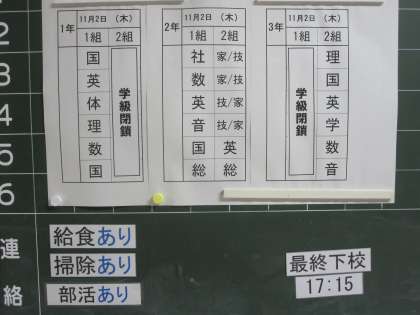 1年 11月2日 (木)
1組 2組
国 学級閉鎖
英
体
理
数
国
2年 11月2日 (木)
1組 2組
社 家/技
数 家/技
英 技/家
音 技/家
国 英
総 総
3年 11月2日 (木)
1組 2組
学級閉鎖 理
国
英
学
数
音
2
3
4
5
6
連絡
給食あり
掃除あり
部活あり
最終下校
17:15